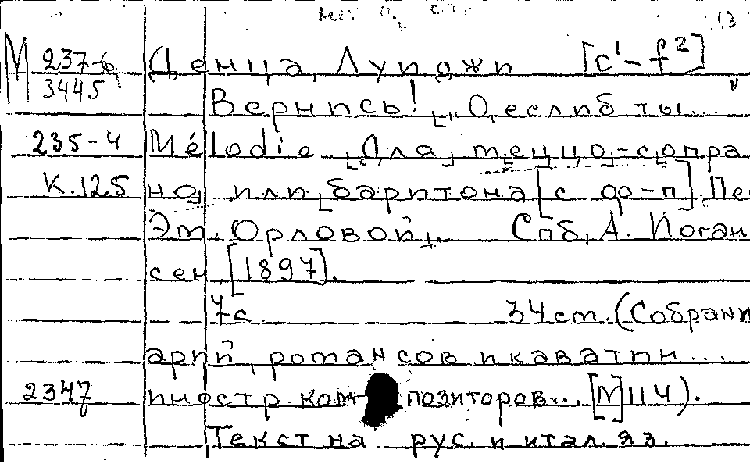 13
М 237-6 Денца, Луиджи [c¹-f²]
3445 Вернись! О, если б ты...
235-4 Mélodie Для меццо-сопра
К.125 но или баритона [с ф-п]. Пе
Эм. Орловой. Спб, А. Иоган
сен [1897].
7с. 34 cm. (Собрани
арий, романсов и каватин...
2347 иностр. ком позиторов... [М]114).
Текст на рус. и итал. яз.